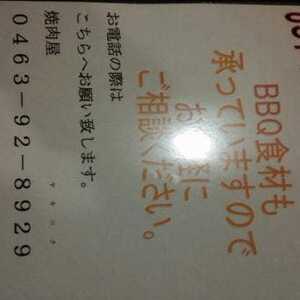 BBQ食材も
承っていますので
お気軽に
ご相談ください。
お電話の際は
こちらへお願い致します。
焼肉屋
ヤキニク
0463-92-8929